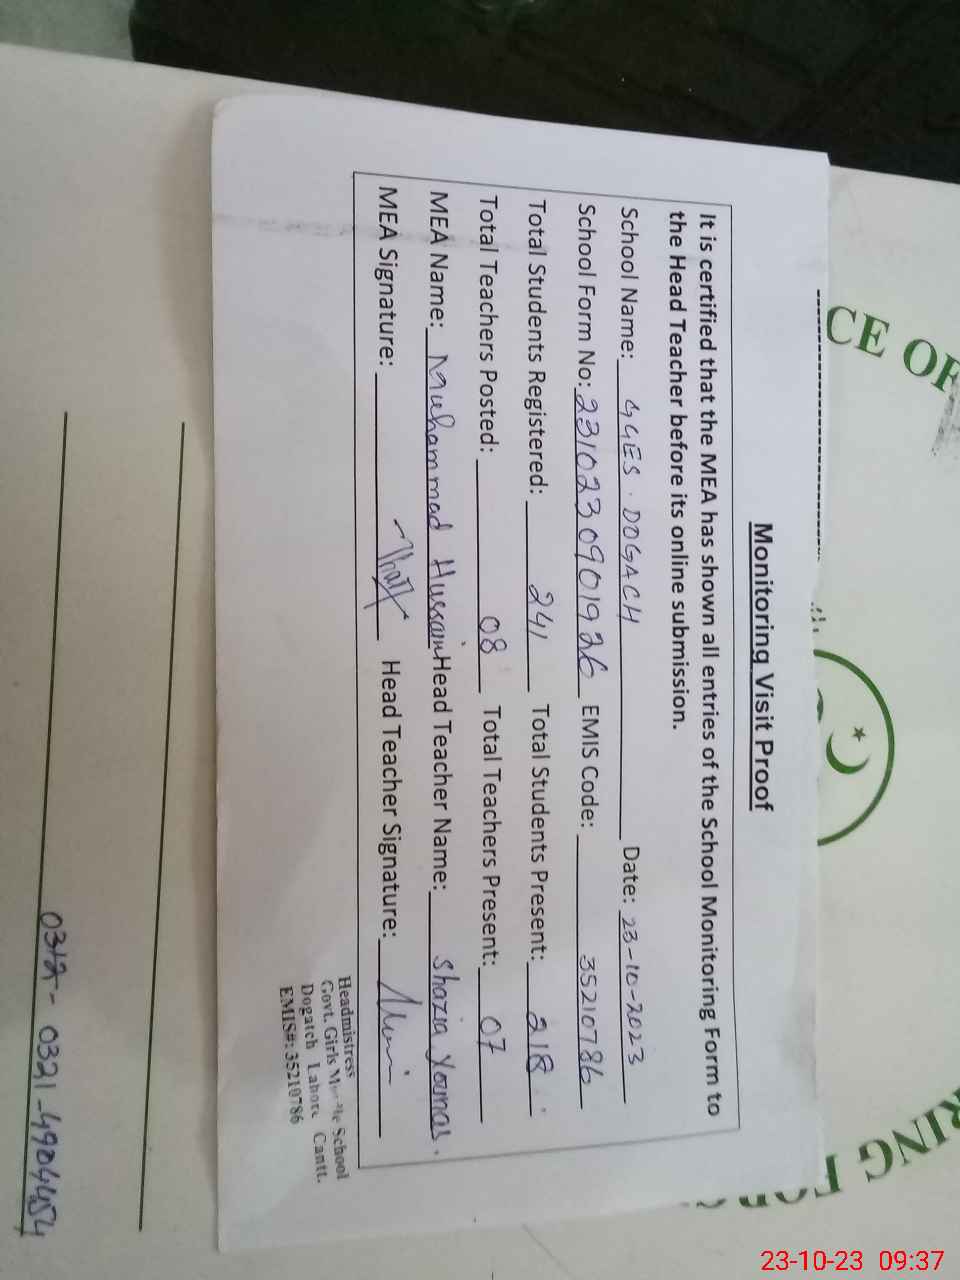 CE OF
RING FOR
Monitoring Visit Proof
It is certified that the MEA has shown all entries of the School Monitoring Form to
the Head Teacher before its online submission.
School Name: GGES. DOGACH Date: 23-10-2023
School Form No: 2310230901926 EMIS Code: 35210786
Total Students Registered: 241 Total Students Present: 218
Total Teachers Posted: 08 Total Teachers Present: 07
MEA Name: Muhammad Hussain Head Teacher Name: Shazia Younas.
MEA Signature: Head Teacher Signature:
Headmistress
Govt. Girls School
Dogatch Lahore Cantt.
EMIS#: 35210786
0321-4904454
23-10-23 09:37